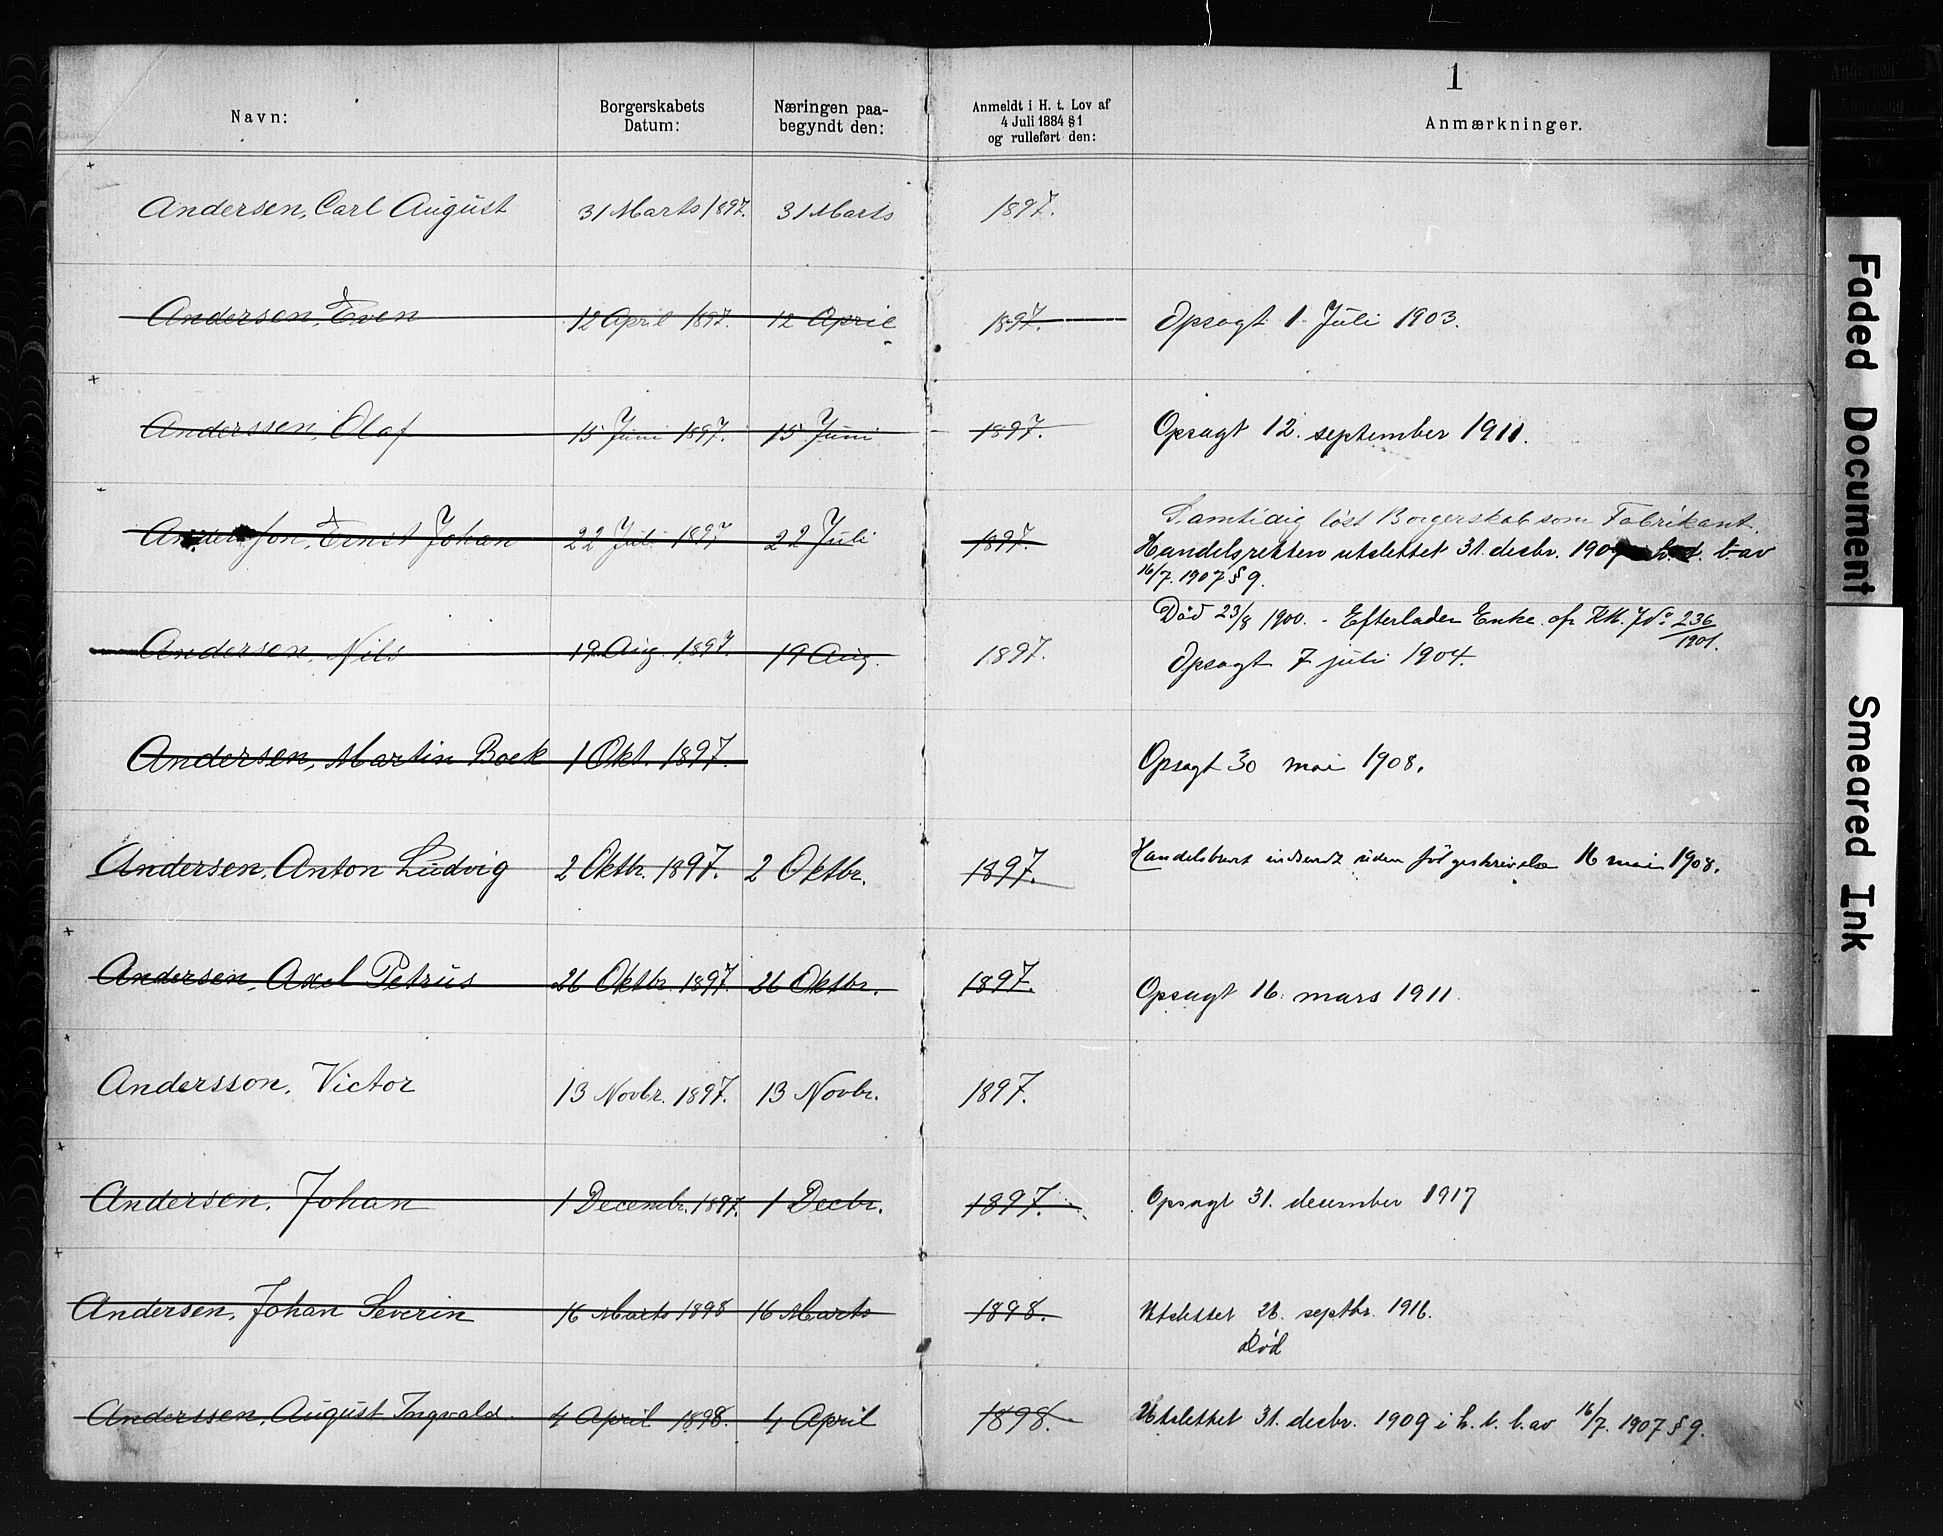 1
Navn: Borgerskabets Datum: Næringen paa-begyndt den: Anmeldt i H. t. Lov af 4 Juli 1884 § 1 og rulleført den: Anmærkninger.
Andersen, Carl August 31 Marts 1897. 31 Marts 1897.
Andersen, Even 12 April 1897. 12 April 1897. Opsagt 1. Juli 1903.
Anderssen, Olaf 15 Juni 1897. 15 Juni 1897. Opsagt 12. september 1911.
Samtidig löst Borgerskab som Fabrikant.
Ernst Johan 22 Juli 1897 22 Juli 1897. Handelsretten utslettet 31. desbr. 1909 l. av
16/7. 1907 § 9.
Död 23/8 1900. - Efterlader Enke. cfr No: 236/1901.
Andersen, Nils 19 Aug. 1897. 19 Aug. 1897. Opsagt 7 juli 1904.
Andersen, Martin Boek 1 Okt. 1897. Opsagt 30 mai 1908.
Andersen, Anton Ludvig 2 Oktbr. 1897. 2 Oktbr. 1897. Handelsbrev indsendt uden følgeskrivelse 16 mai 1908.
Andersen, Axel Petrus 26 Oktbr. 1897. 26 Oktbr. 1897. Opsagt 16. mars 1911.
Andersson, Victor 13 Novbr. 1897. 13 Novbr. 1897.
Andersen, Johan 1 Decembr. 1897. 1 Decbr. 1897. Opsagt 31. desember 1917
Andersen, Johan Severin 16 Marts 1898 16 Marts 1898. Utslettet 26. septbr. 1916.
Død
Anderssen, August Ingvald. 4 April 1898. 4 April 1898. Utslettet 31. desbr. 1909 i h. t. l. av 16/7. 1907 § 9.
Faded Document
Smeared Ink